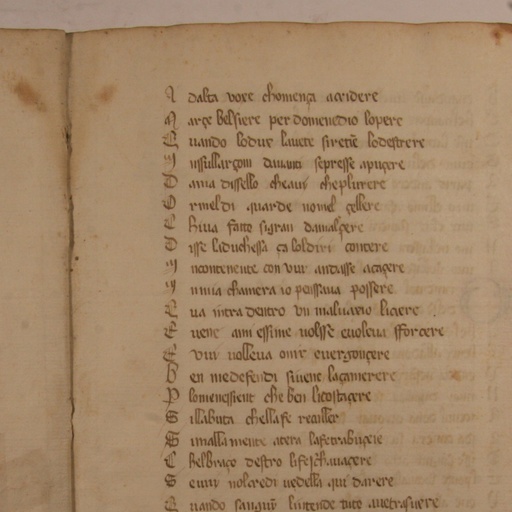 A dalta voxe chomença a cridere
M arçe bel siere per domenedio lo pere
Q uando lo dux lavete si retiē lo destrere
I nsullarçom davanti se presse apuçere
D ama dissello che avi che plurere
O r mel di guarde nomel çellere
C hi va fatto si gran damalçere
D isse la duchessa ça lo ldiri contere
I ncontenente con vui andasse acaçere
I n mia chamera io penssava possere
E va intra dentro un malvaxio liciere
E vene a mi essime volsse e voleva sforcere
E vui volleva onir e vergonçere
B en me defendi si vene la çamerere
P lomenessient che ben li costaçere
S illabuta chella fe reculler
S i mallamente atera la fe trabuçere
C hel braço destro li fe schavaçere
S e vui nol credi vedella qui darere
Q uando sanguin lintende tuto